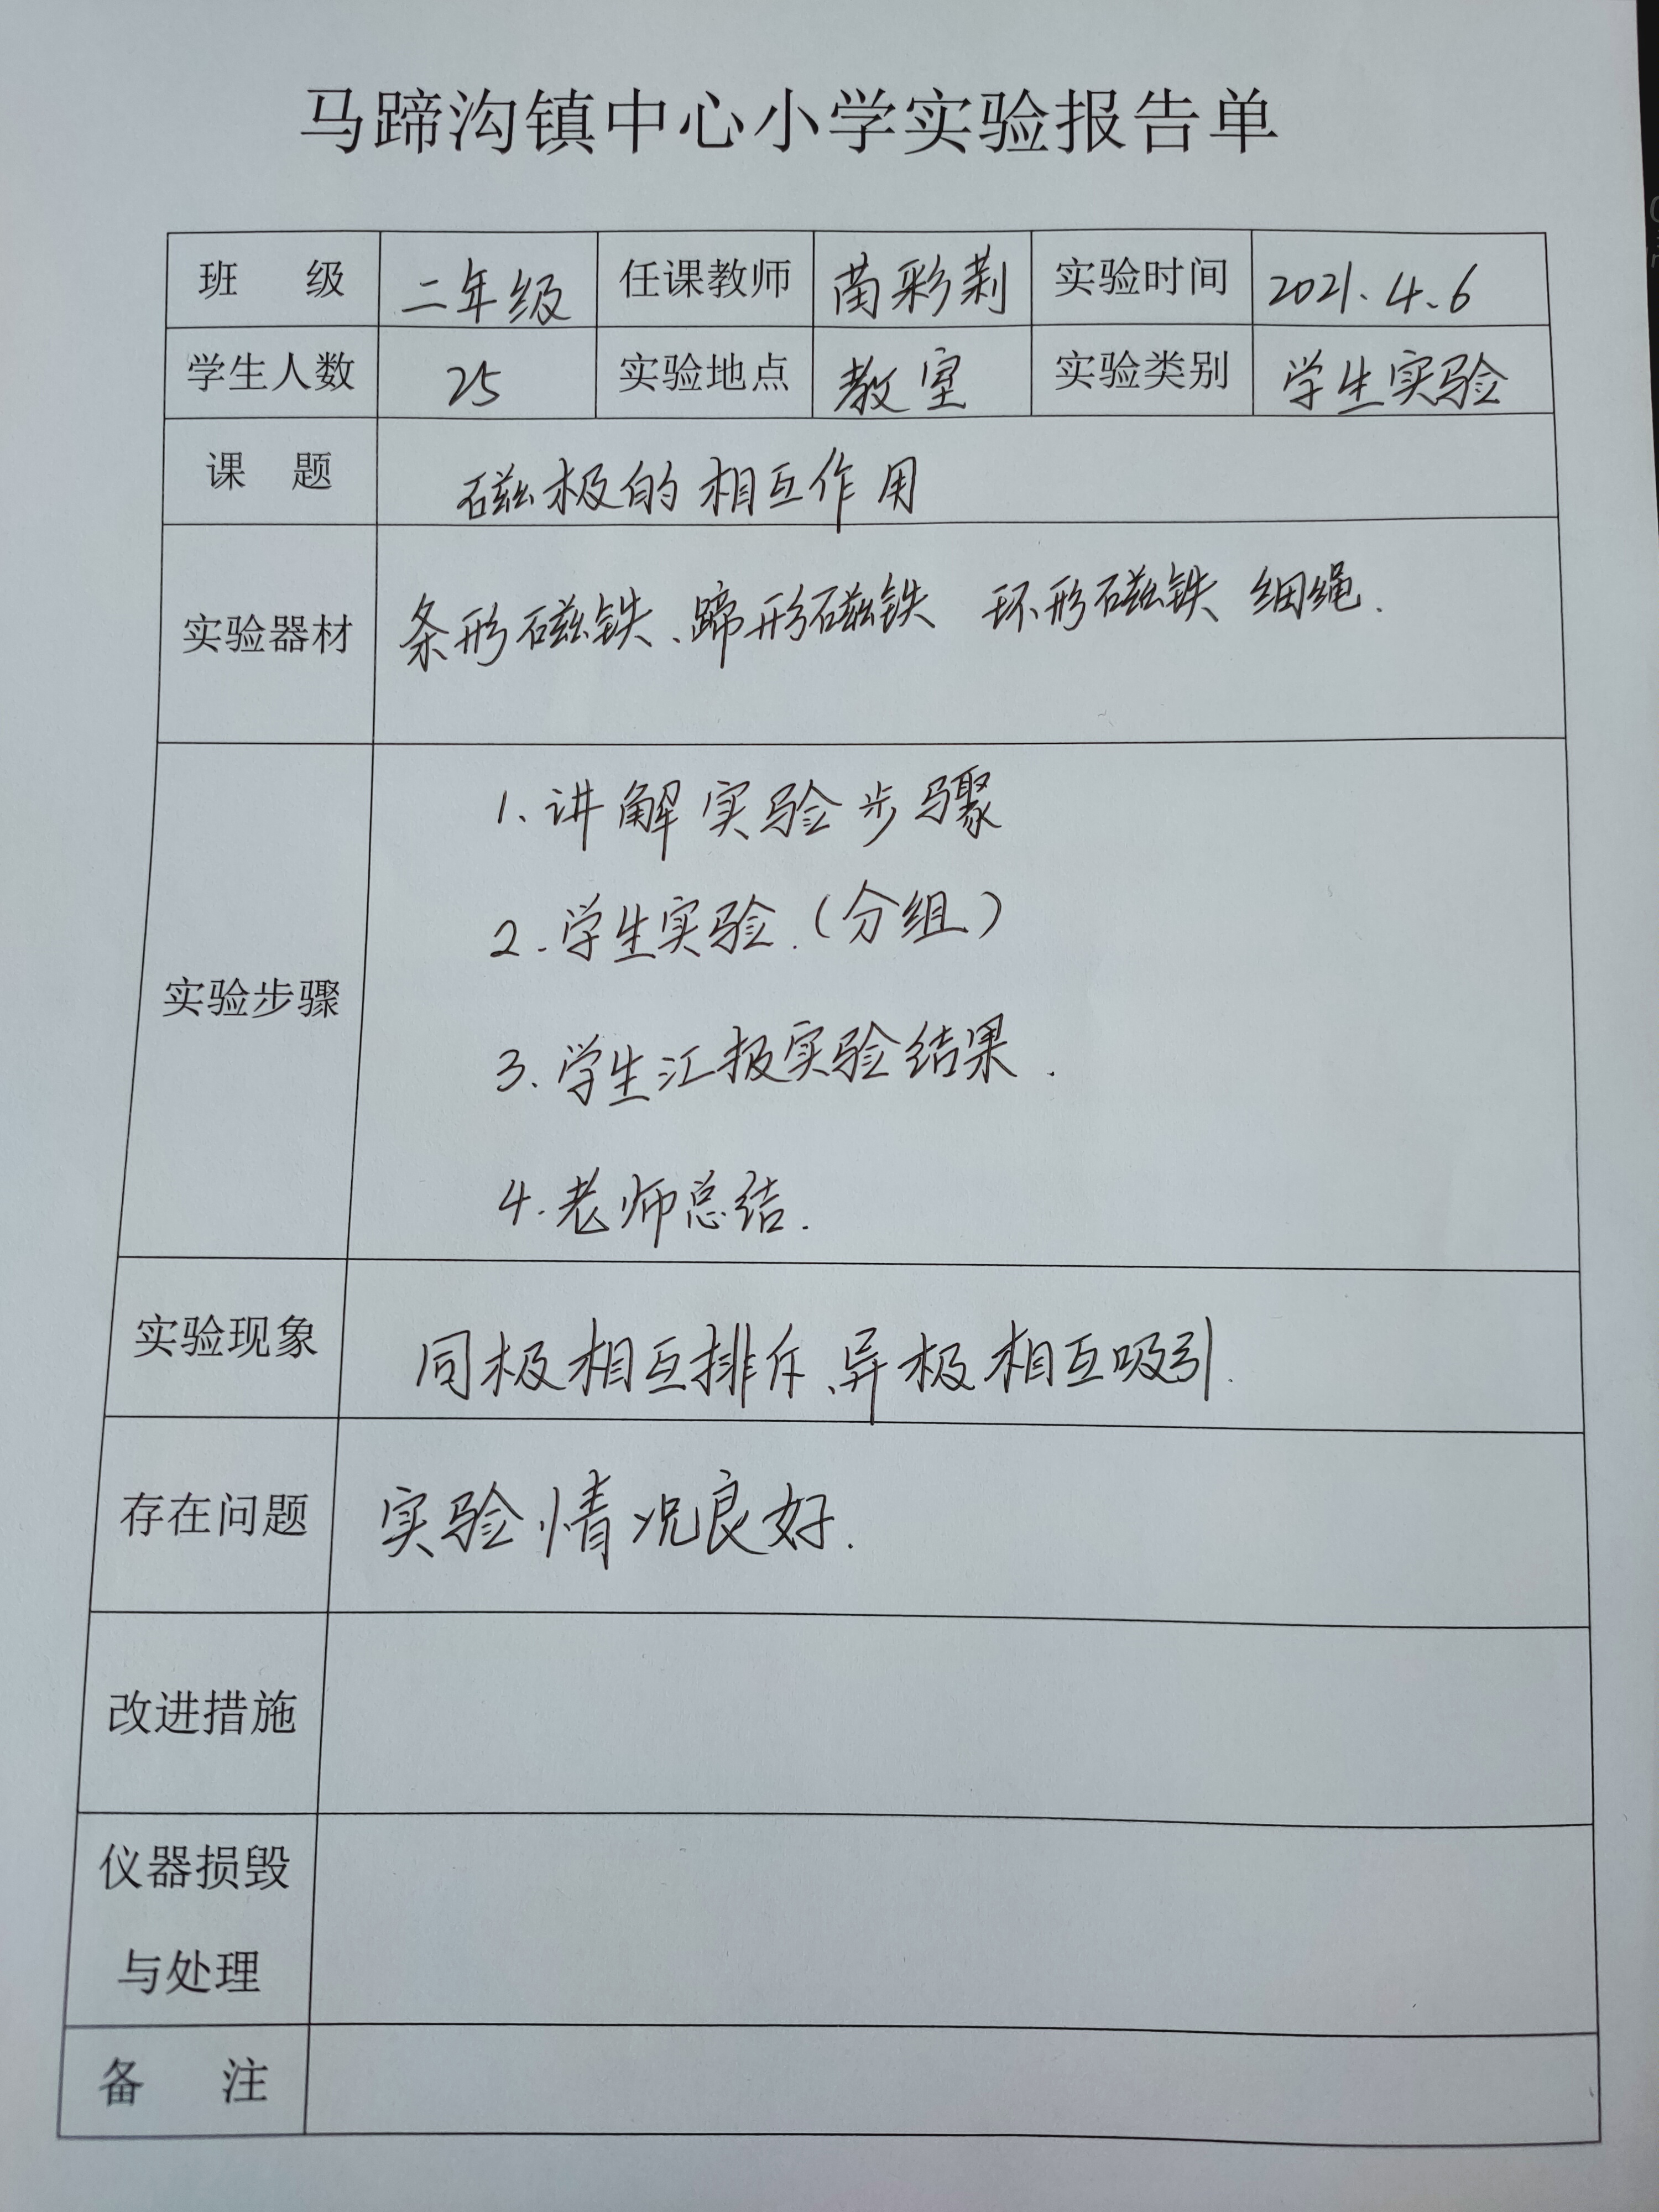 马蹄沟镇中心小学实验报告单
班 级 二年级 任课教师 苗彩莉 实验时间 2021.4.6
学生人数 25 实验地点 教室 实验类别 学生实验
课 题 磁极的相互作用
实验器材 条形磁铁、蹄形磁铁 环形磁铁 细绳.
实验步骤
1、讲解实验步骤
2.学生实验.(分组)
3.学生汇报实验结果.
4.老师总结.
实验现象 同极相互排斥、异极相互吸引.
存在问题 实验情况良好.
改进措施
仪器损毁
与处理
备 注